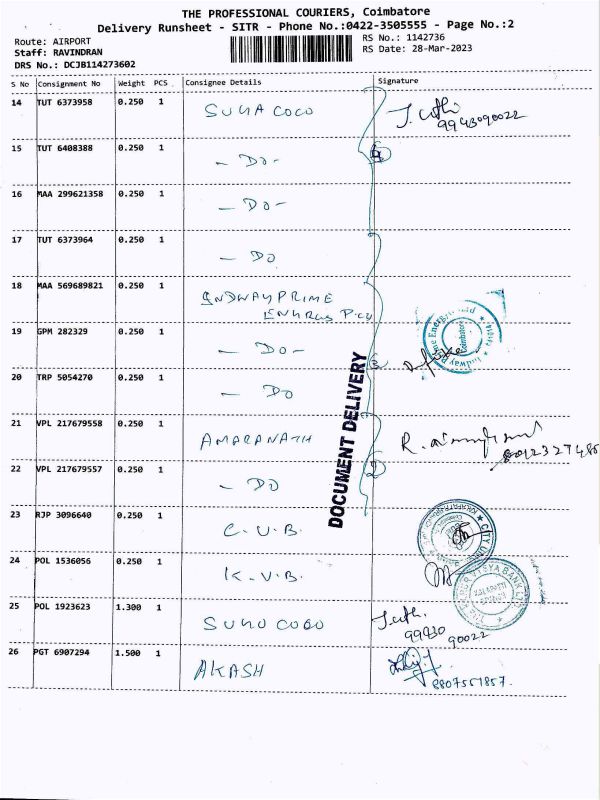 THE PROFESSIONAL COURIERS, Coimbatore
Delivery Runsheet - SITR - Phone No.:0422-3505555 - Page No.:2
Route: AIRPORT
RS No.: 1142736
Staff: RAVINDRAN
RS Date: 28-Mar-2023
DRS No.: DCJB114273602
S No Consignment No Weight PCS Consignee Details Signature
14 TUT 6373958 0.250 1 SUNA COCO
9943090022
15 TUT 6408388 0.250 1 - DO -
16 MAA 299621358 0.250 1 - DO -
17 TUT 6373964 0.250 1 - DO
18 MAA 569689821 0.250 1 INDWAY PRIME
19 GPM 282329 0.250 1 - DO -
20 TRP 5054270 0.250 1 - DO
DOCUMENT DELIVERY
21 VPL 217679558 0.250 1 AMARANATH
22 VPL 217679557 0.250 1 - DO
23 RJP 3096640 0.250 1 C.U.B.
24 POL 1536056 0.250 1 K.V.B.
25 POL 1923623 1.300 1
99430 90022
26 PGT 6907294 1.500 1 AKASH
8807557857.